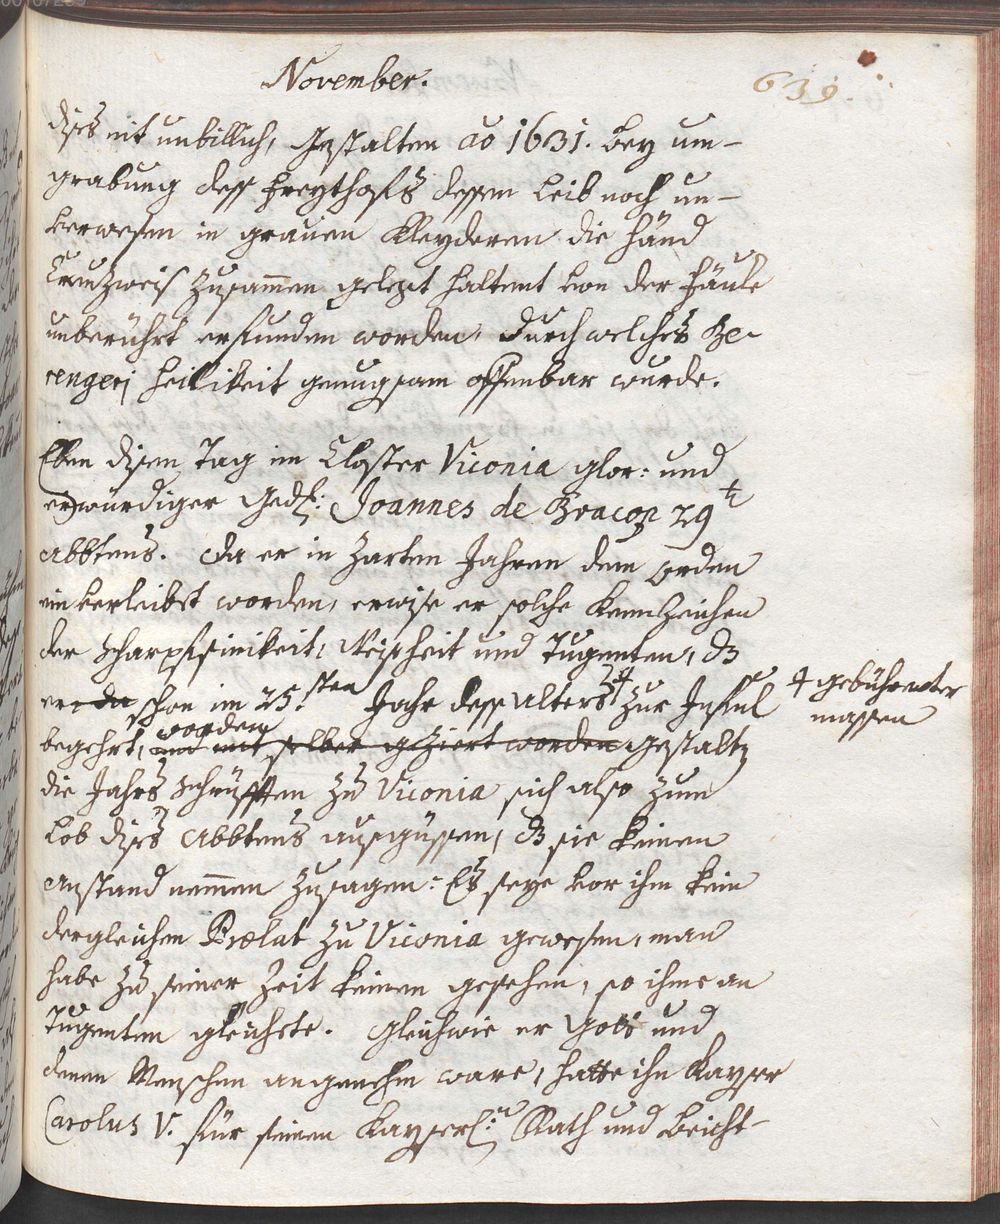 November.
639.
dises nit unbillich, Gestalten ao 1631. bey um-
grabung dess freythofs dessen Leib noch un-
verwesen in grauen Kleyderen die händ
Creutzweis zusam̄en gelegt haltent von der fäule
unberührt erfunden worden, durch welches Be-
rengerj heilikeit genugsam offenbar wurde.
Eben disen Tag im Closter Viconia glor: und
erwürdiger Ged: Joannes de Bracop 29t
Abbtens. da er in zarten Jahren dem orden
einverleibt worden, erwise er solche Kennzeichen
der scharpfsinikeit, Weisheit und Tugenten, dz
er da schon im 25.sten Jahr dess alters ☩ zur Inful ☩ gebührenter
massen
begehrt, worden und mit selber geziert worden Gestaltz
die Jahrs schrüfften zu Viconia sich also zum
Lob dises Abbtens ausgüssen, dz sie keinen
anstand nem̄en zusagen: Es seye vor ihm kein
dergleichen Prælat zu Viconia gewesen, man
habe zu seiner Zeit keinen gesehen, so ihme an
Tugenten gleichete. Gleichwie er Gott und
denen Menschen angenehm ware, hatte ihn Kayser
Carolus V. für seinen Kayserl:en Rath und Beicht-